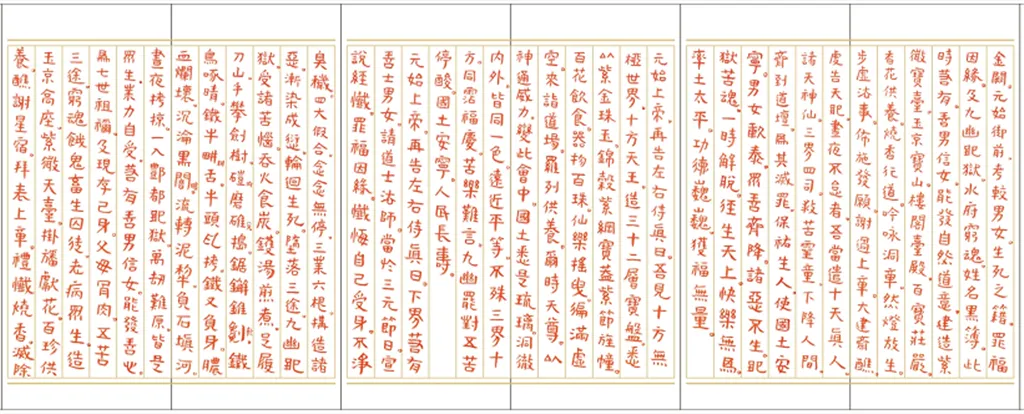 金闕元始御前考較男女生死之籍罪福
因緣及九幽地獄水府窮魂姓名黑簿此
時若有善男信女能發自然道意建造紫
微寶臺玉京寶山樓閣臺殿百寶莊嚴
香花供養燒香行道吟詠洞章然燈放生
步虛法事佈施發願謝過上章大建齋醮
虔告天地晝夜不怠者吾當遣十天真人
諸天神仙三界四司殺苦靈童下降人間
齊到道壇為其滅罪保祐生人使國土安
寧男女歡泰眾善齊降諸惡不生地
獄苦魂一時解脫徑生天上快樂無為
率土太平功德巍巍獲福無量
元始上帝再告左右侍真曰吾見十方無
極世界十方天王造三十二層寶盤悉
以紫金珠玉錦縠紫綱寶蓋紫節旌幢
百花飲食器物百珠仙樂搖曳徧滿虛
空來詣道場羅列供養爾時天尊以
神通威力變此會中國土悉是琉璃洞徹
內外皆同一色遠近平等不殊三界十
方同霑福慶苦樂難言九幽罷對五苦
停酸國土安寧人民長壽
元始上帝再告左右侍真曰下界若有
善士男女請道士法師當於三元節日宣
說經懺罪福因緣懺悔自己受身不淨
臭穢四大假合念念無停三業六根構造諸
惡漸染成愆輪迴生死墮落三途九幽地
獄受諸苦惱吞火食炭鑊湯煎煮足履
刀山手攀劍樹磑磨碓搗鋸解錐剜鐵
鳥啄睛鐵牛畊舌牛頭乱拷鐵叉負身膿
血爛壞沉淪黑闇流轉泥犁負石填河
晝夜拷掠一入酆都地獄萬劫難原皆是
眾生業力自受若有善男信女能發善心
為七世祖禰及現存己身父母骨肉五苦
三途窮魂餓鬼畜生囚徒老病眾生造
玉京高座紫微天臺掛旛獻花百珍供
養醮謝星宿拜表上章禮懺燒香滅除